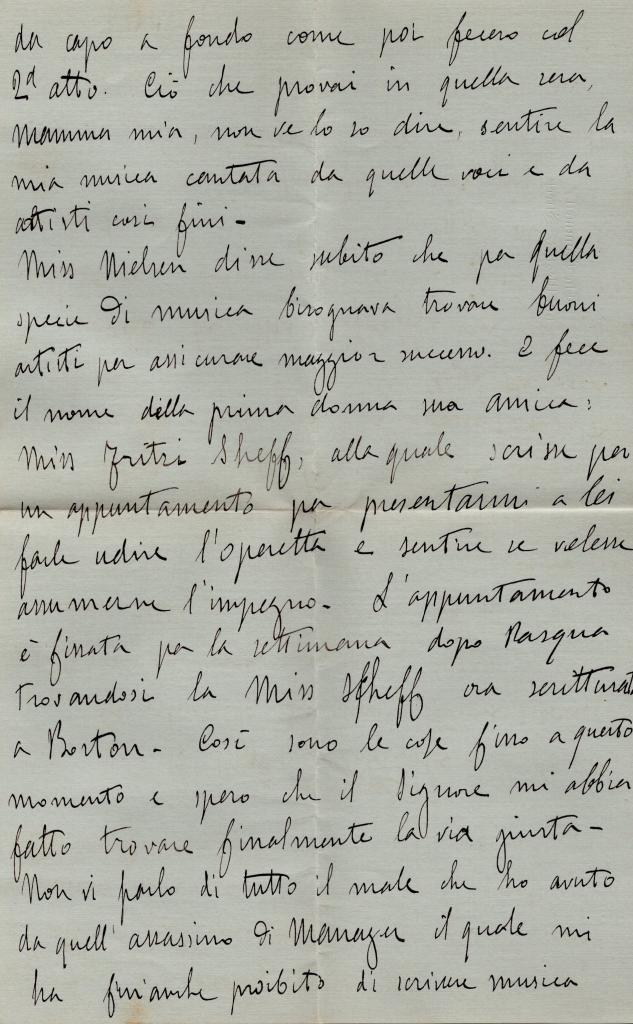 da capo a fondo come poi fecero col
2º atto. Ciò che provai in quella sera,
mamma mia, non ve lo so dire, sentire la
mia musica cantata da quelle voci e da
artisti così fini -
Miss Nielsen disse subito che per quella
specie di musica bisognava trovare buoni
artisti per assicurare maggior successo. E fece
il nome della prima donna sua amica:
Miss Fritzi Sheff, alla quale scrisse per
un appuntamento per presentarmi a lei
farle udire l'operetta e sentire se volesse
assumerne l'impegno - L'appuntamento
è fissata per la settimana dopo Pasqua
trovandosi la Miss Sheff ora scritturata
a Boston - Così sono le cose fino a questo
momento e spero che il Signore mi abbia
fatto trovare finalmente la via giusta -
Non vi parlo di tutto il male che ho avuto
da quell'assassino di Manager il quale mi
ha finianche proibito di scrivere musica